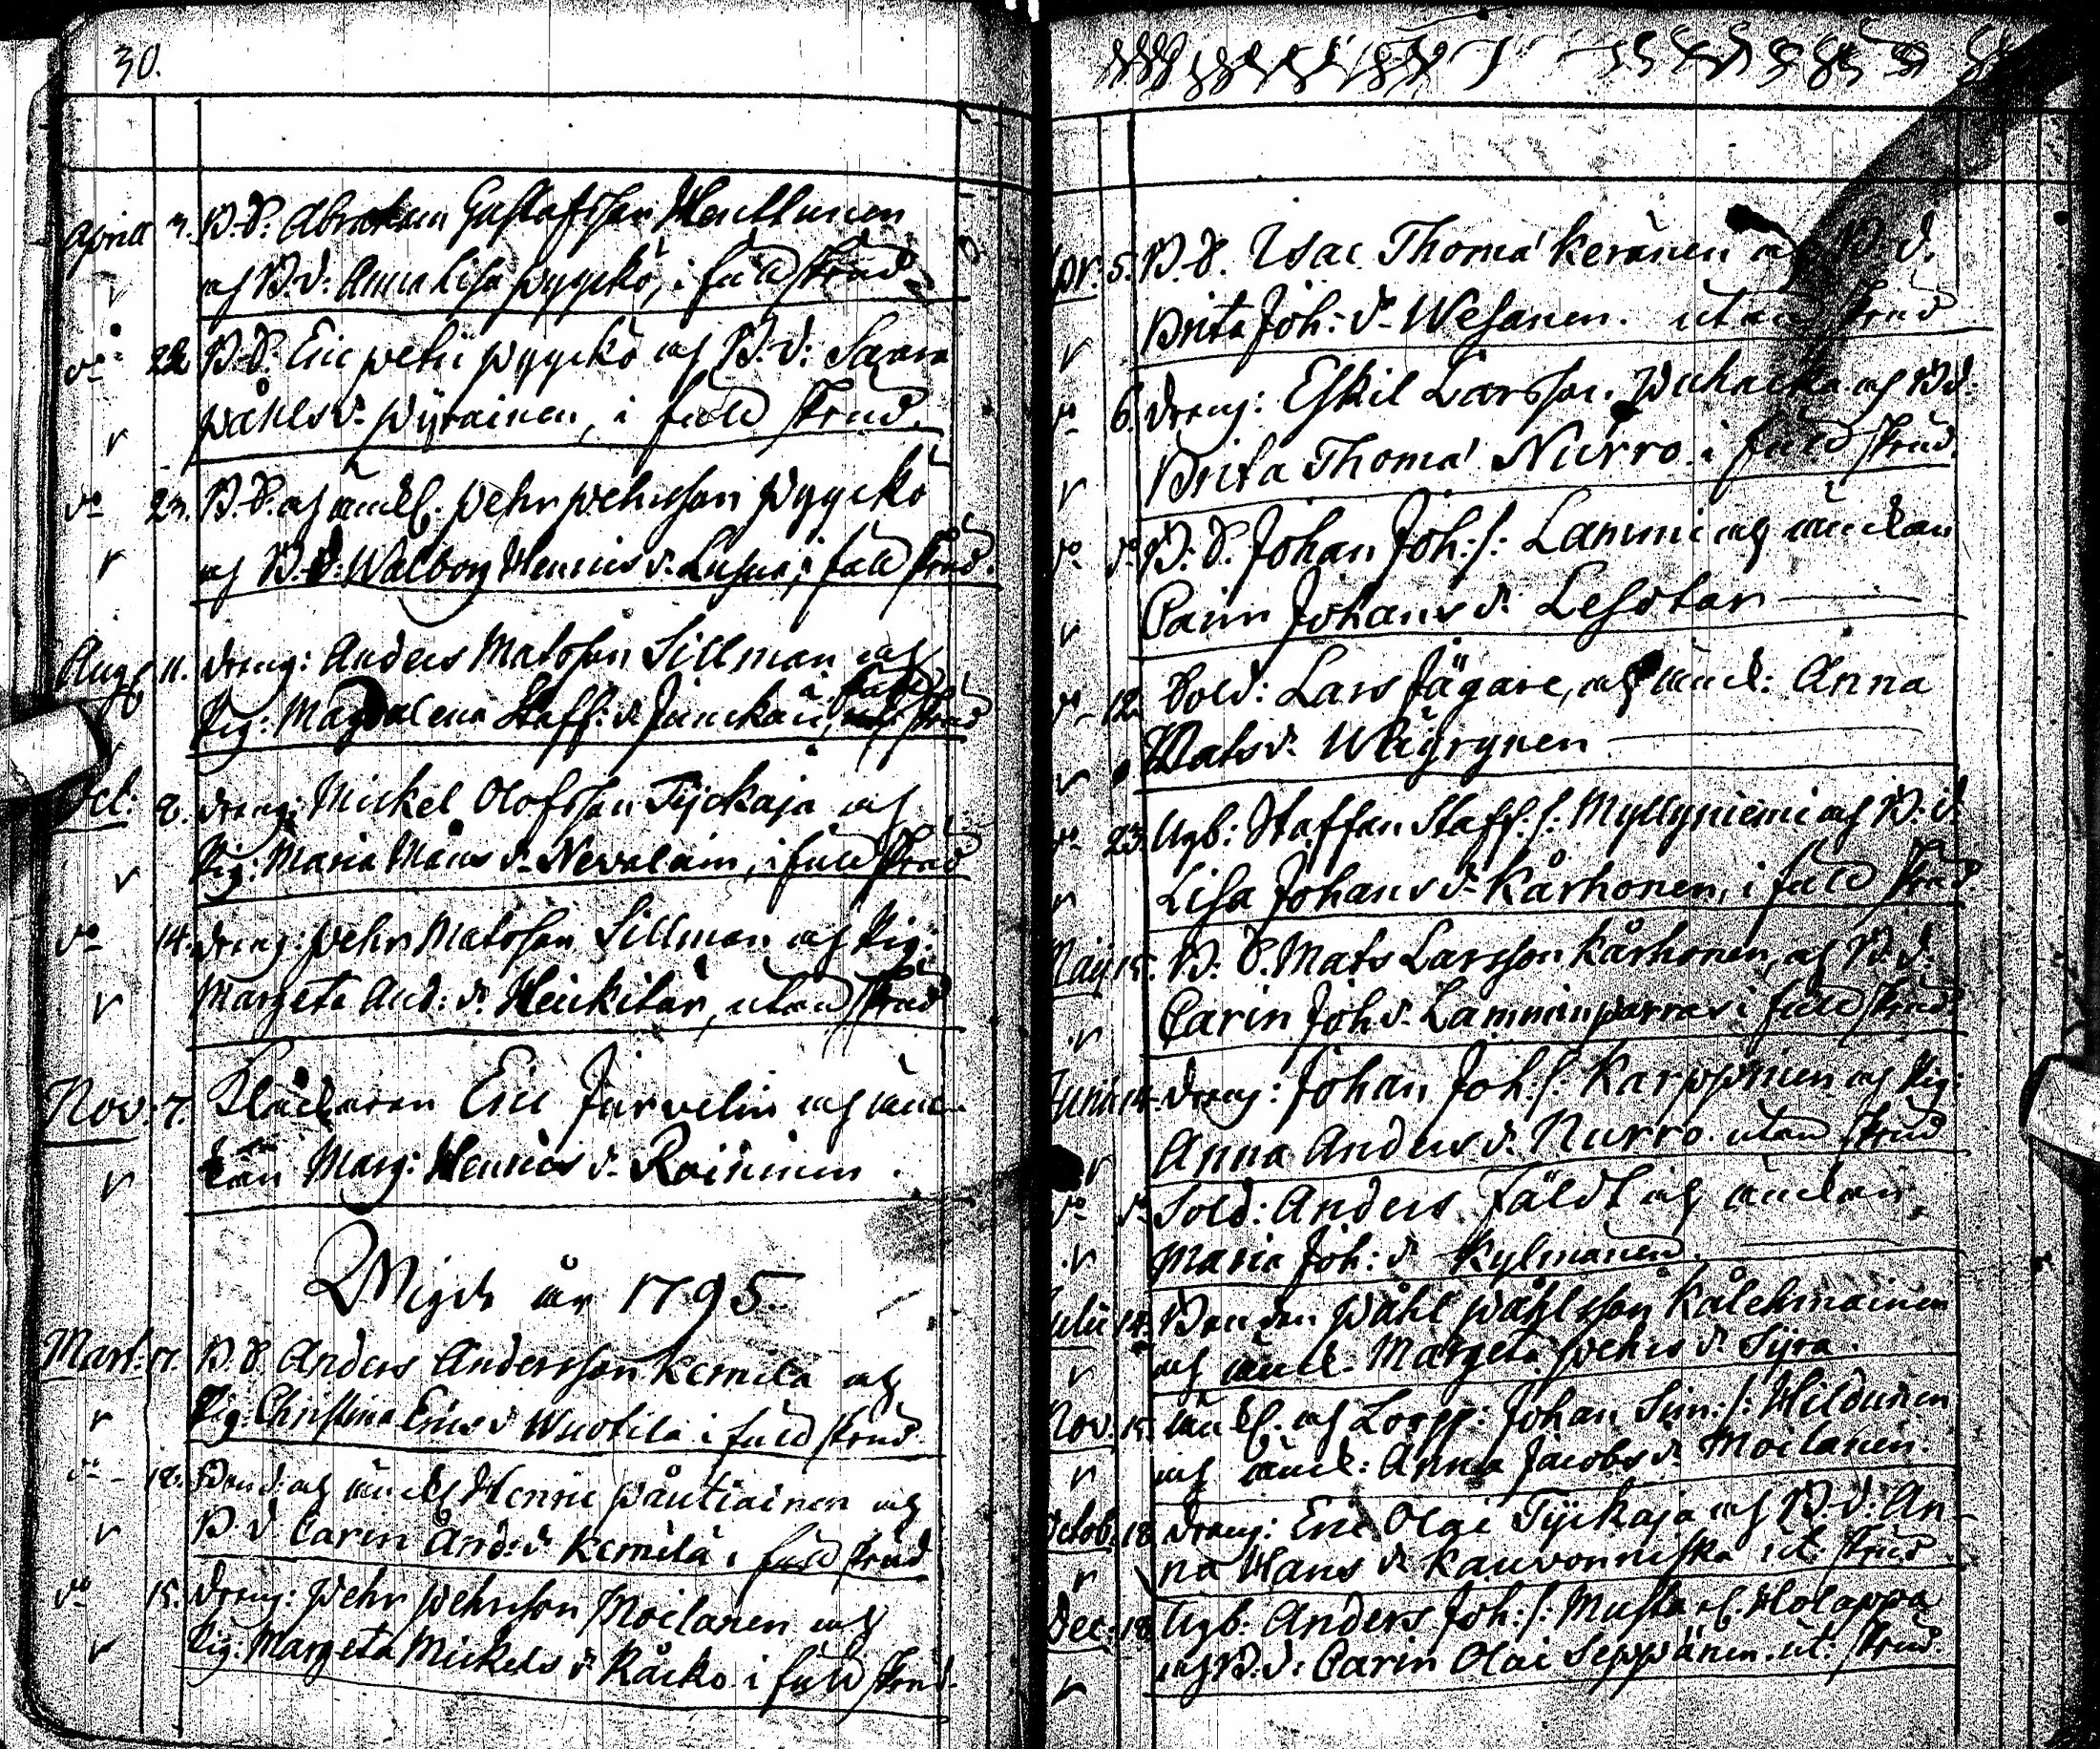 30.
Aprill 7. B.S. Abraham Gustafsson Hentlunen
och B.d: Anna Lisa Pyyckö, i full skrud
do 22 B.S. Eric Petri Pyyckö och B.d: Saara
Påhls d. Pyrainen, i full skrud.
do 23. B.S. och änckl. Pehr Pehrsson Pyyckö
och B.d. Walborg Henrics d. i full skrud.
Aug 11. dreng: Anders Matsson Sillman och
Pig: Magdalena Staff: d. Junckari, i full skrud
Oct: 2. dreng: Mickel Olofsson Tyckäjä och
Pig: Maria Måns d. Nevalain, i full skrud
do 14. dreng: Pehr Matsson Sillman och Pig:
Margeta And: d. Heickitar, utan skrud
Nov: 7. Klåckaren Eric Järvelin och änc-
kan Marg: Henrics d. Roininen.
Wigde år 1795
Mart: 17. B.S. Anders Andersson Kemilä och
Pig: Christina Erics d Wuotila i full skrud.
do 18. Bond: och änckl Henric Påutiainen och
B.d Carin And: d. Kemilä i full skrud
do 15. dreng: Pehr Pehrsson Moilanen och
Pig: Margeta Mickels d. Råcko i full skrud.
Apr. 5. B.S. Isac Thomæ Keränen och B.d.
Brita Joh: d. Wesanen. utan skrud
do 6. dreng: Eskil Larsson Puhacka och Bd:
Brita Thomæ Nurro i full skrud.
do do B.S. Johan Joh: s: Lammi och änckan
Carin Johans d. Lesotar
do 12. Sold: Lars Jägare, och änck: Anna
Mats d. Wäyrynen
do 23. Ugb: Staffan Staff: s: Myllyniemi och B.d
Lisa Johans d. Kårhonen, i full skrud
Maij 15. B.S. Mats Larsson Kårhonen, och B.d:
Carin Joh d. Lamminparras i full skrud
Junii 14. dreng: Johan Joh: s: Karppinen och Pig:
Anna Anders d. Nurro. utan skrud
do do Sold: Anders Fäldt och änckan
Maria Joh: d. Kylmänen.
Julii 14. Bonden Påhl Påhlsson Kålehmainen
och änck. Margeta Pehrs d. Syra.
Nov. 15. änckl. och Lorpp: Johan Sim: s: Hildunen
och änck: Anna Jacobs d. Moilanen.
Octob. 18 dreng: Eric Olai Tyckäjä och B.d: An-
na Hans d. Kauvonniska ut: skrud
Dec: 18 Ugb: Anders Joh: s: Musta el. Holappa
och B.d: Carin Olai Seppänen. ut: skrud.